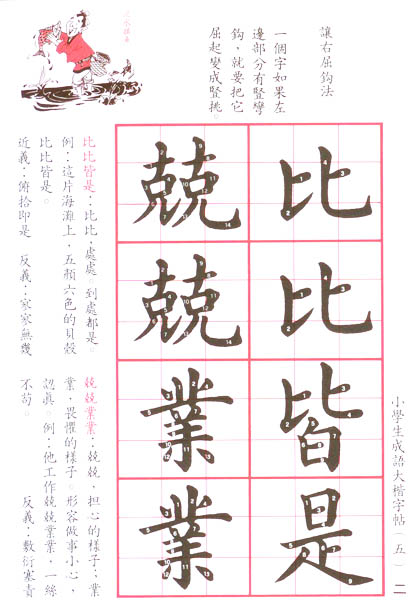 讓右屈鈎法
一個字如果左
邊部分有豎彎
鈎,就要把它
屈起變成豎挑。
小學生成語大楷字帖(五) 二
比比皆是
兢兢業業
比比皆是:比比,處處。到處都是。
例:這片海灘上,五顏六色的貝殼
比比皆是。
近義:俯拾即是 反義:寥寥無幾
兢兢業業:兢兢,担心的樣子;業
業,畏懼的樣子。形容做事小心,
認真。例:他工作兢兢業業,一絲
不苟。 反義:敷衍塞責